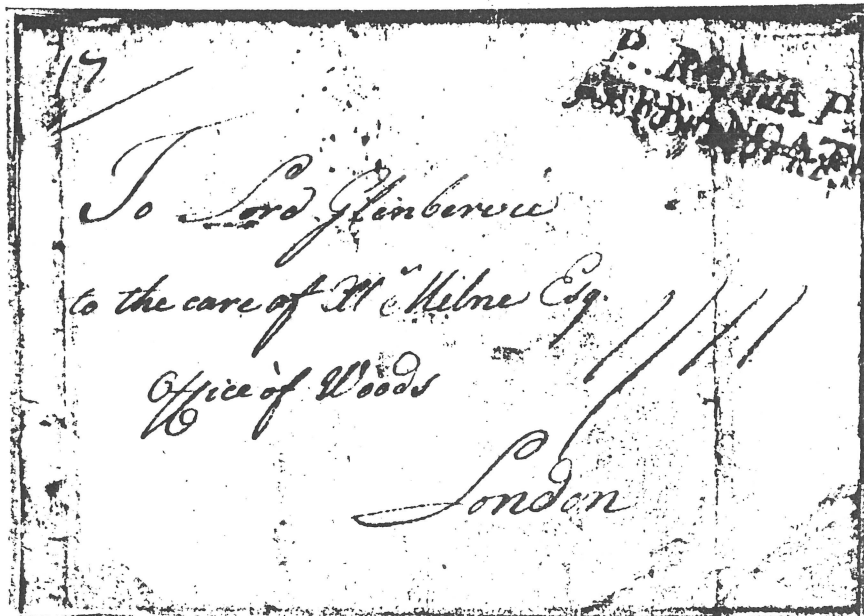 17
To Lord Glenbervie
to the care of Wm Milne Esq.
Office of Woods
London